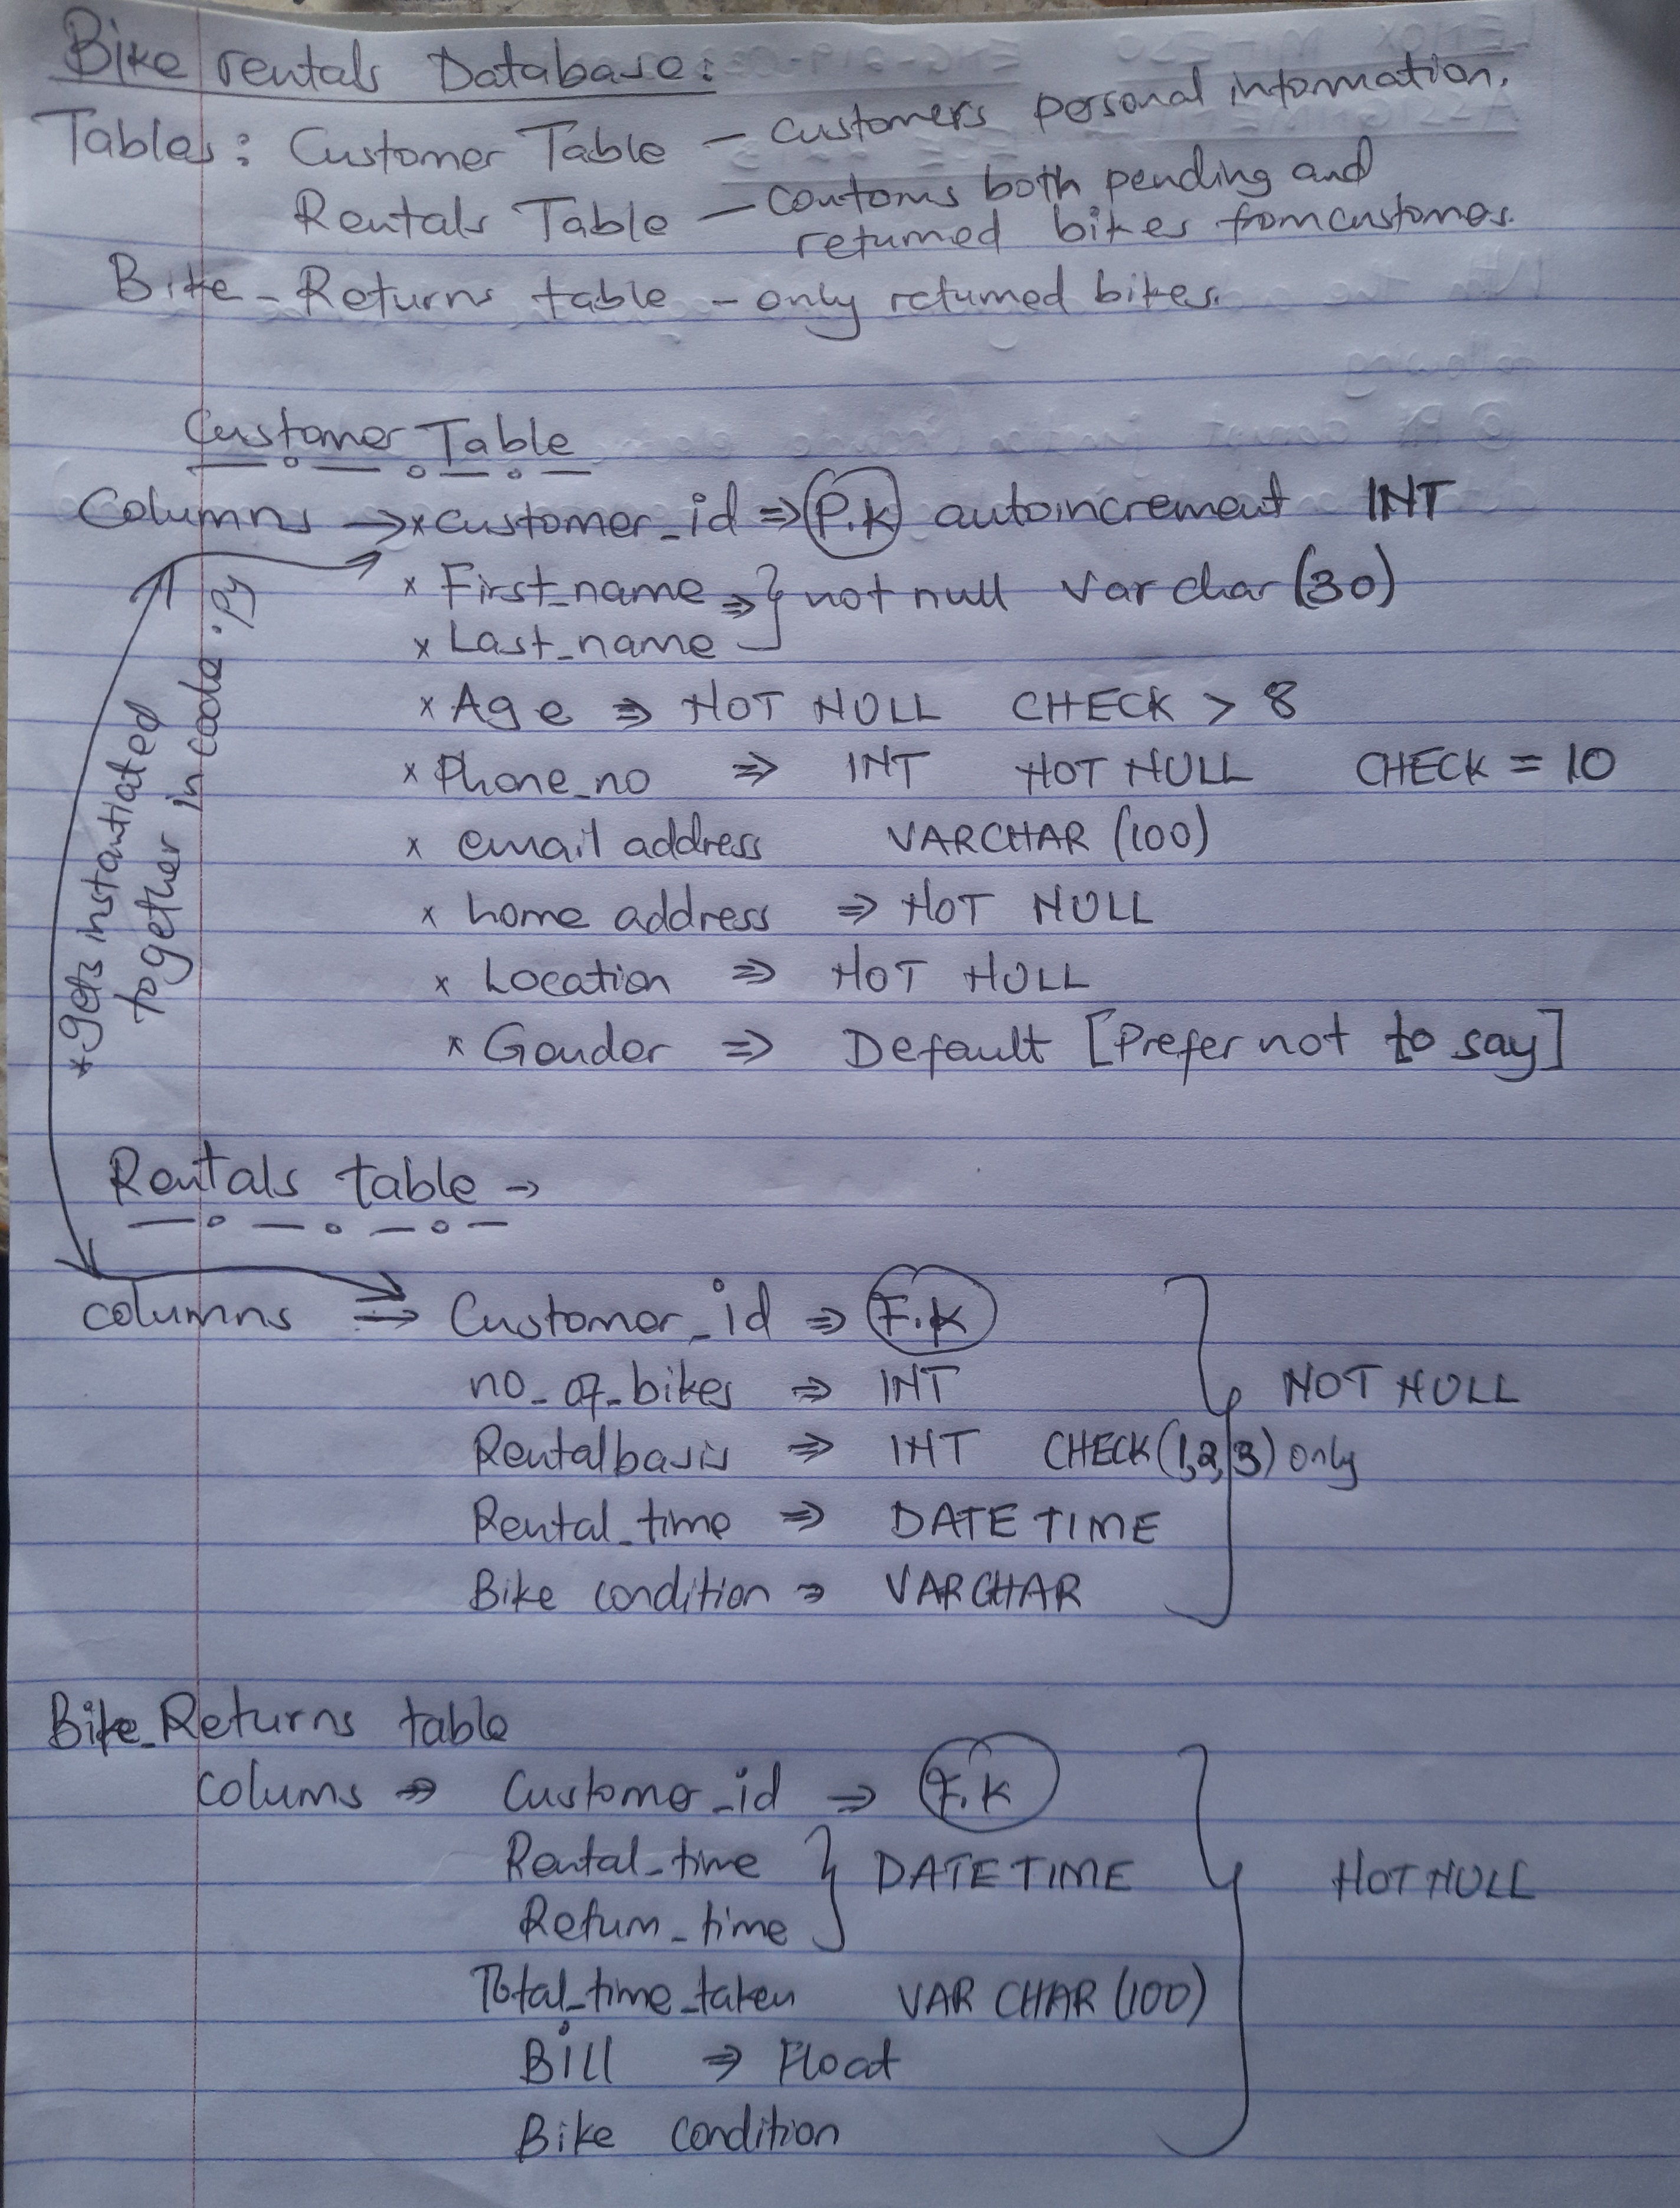 Bike rentals Database:
Tables: Customer Table – customers personal information.
Rentals Table – contains both pending and
returned bikes from customers.
Bike_Returns table – only returned bikes.
Customer Table
Columns → x customer_id ⇒ P.K autoincrement INT
x First_name ⇒ } not null Varchar (30)
x Last_name
x Age ⇒ NOT NULL CHECK > 8
x Phone_no ⇒ INT NOT NULL CHECK = 10
x email address VARCHAR (100)
x home address ⇒ NOT NULL
x Location ⇒ NOT NULL
x Gender ⇒ Default [Prefer not to say]
* gets instantiated
together in code .py
Rentals table →
columns ⇒ Customer_id ⇒ F.K
no_of_bikes ⇒ INT } NOT NULL
Rentalbasis ⇒ INT CHECK (1,2,3) only
Rental_time ⇒ DATETIME
Bike condition ⇒ VARCHAR
Bike_Returns table
colums ⇒ Customer_id ⇒ F.K
Rental_time } DATETIME } NOT NULL
Return_time
Total_time_taken VARCHAR (100)
Bill ⇒ Float
Bike condition